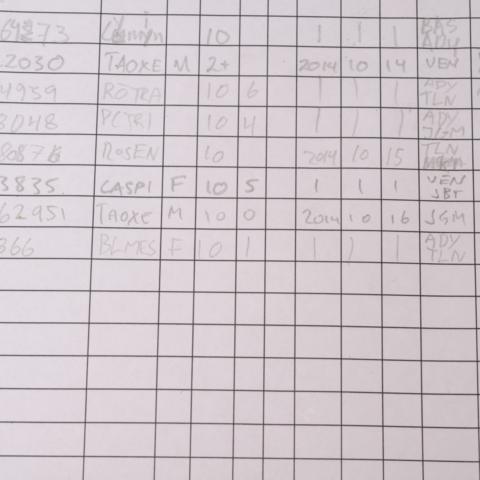 10 | | | BAS ADY
2030 TAOXE M 2+ 2014 10 14 VEN
4939 ROTRA 10 6 | | | ADY TLN
3048 PCTRI 10 4 | | | ADY JGM
ROSEN 10 2014 10 15 TLN
3835 CASPI F 10 5 | | | VEN JBT
62951 TAOXE M 10 0 2014 10 16 JGM
366 BLMES F 10 1 | | | ADY TLN